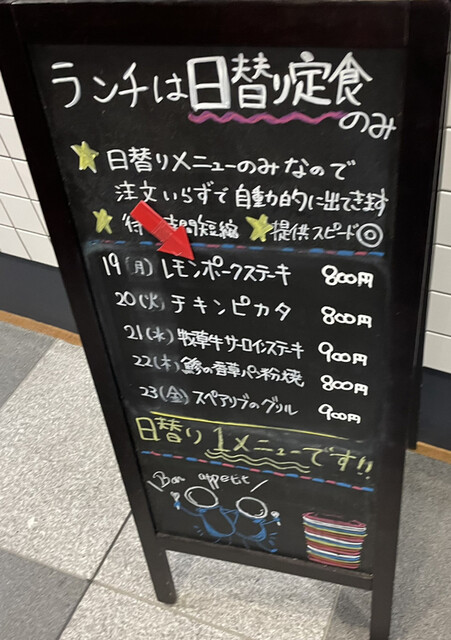 ランチは日替り定食
のみ
日替りメニューのみなので
注文いらずで自動的に出てきます
待 時間短縮 提供スピード◎
19(月) レモンポークステーキ 800円
20(火) チキンピカタ 800円
21(水) 牧草牛サーロインステーキ 900円
22(木) 鯵の香草パン粉焼 800円
23(金) スペアリブのグリル 900円
日替り1メニューです!!
Bon appetit